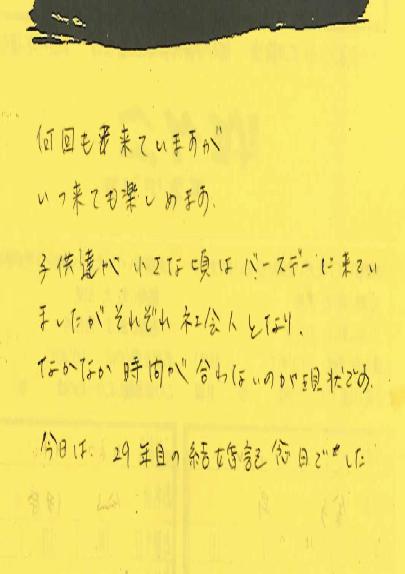 何回も来ていますが
いつ来ても楽しめます。
子供達が小さな頃はバースデーに来てい
ましたがそれぞれ社会人となり、
なかなか時間が合わないのが現状です。
今日は、29年目の結婚記念日でした